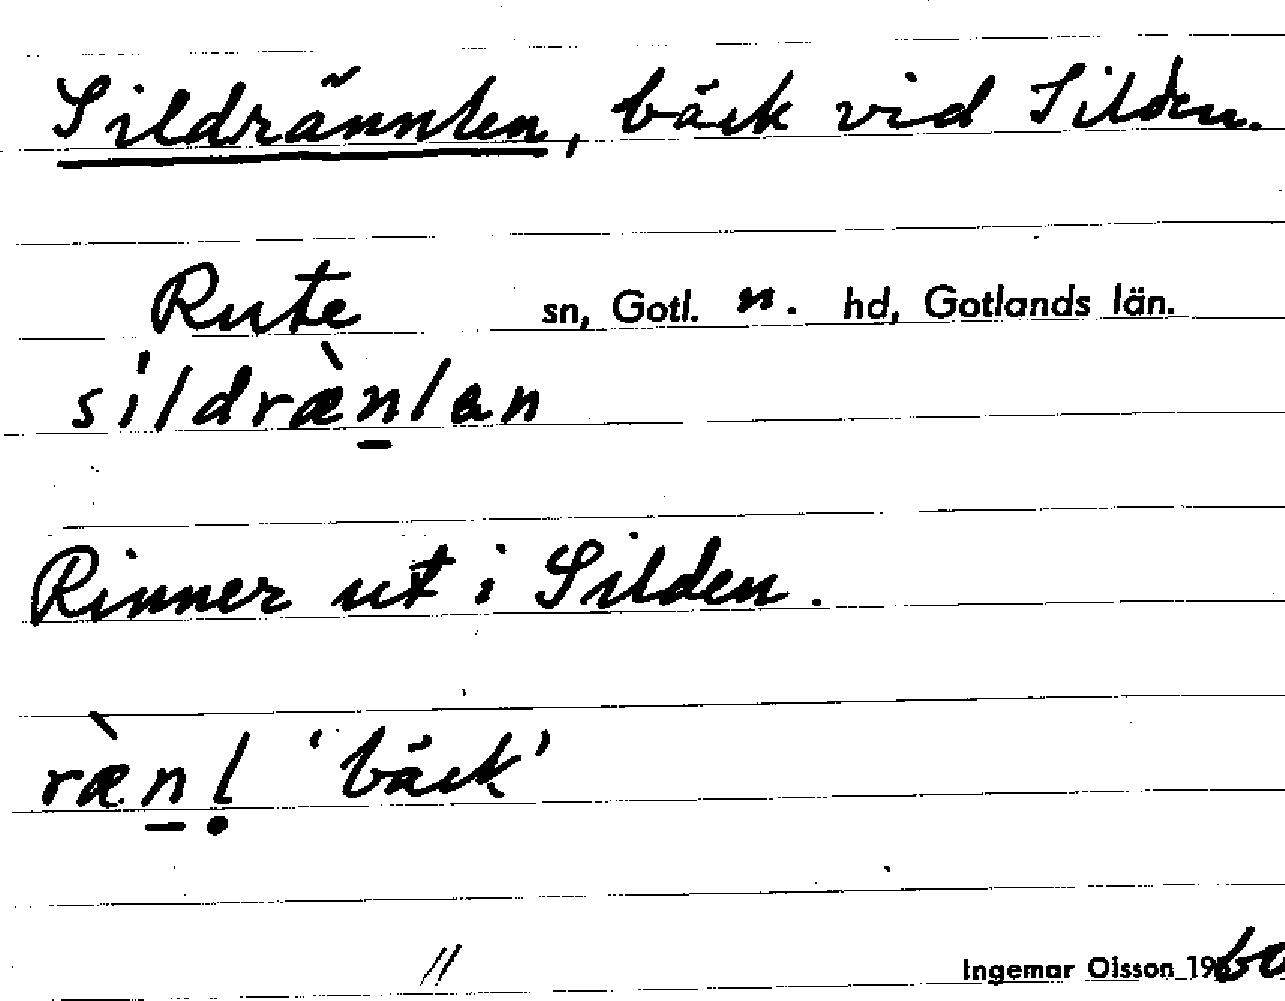 Sildrännlen, bäck vid Silden.
Rute sn, Gotl. n. hd, Gotlands län.
síldræ̀n̲lan
Rinner ut i Silden.
ræ̀n̲ḷ 'bäck'
//
Ingemar Olsson 1960